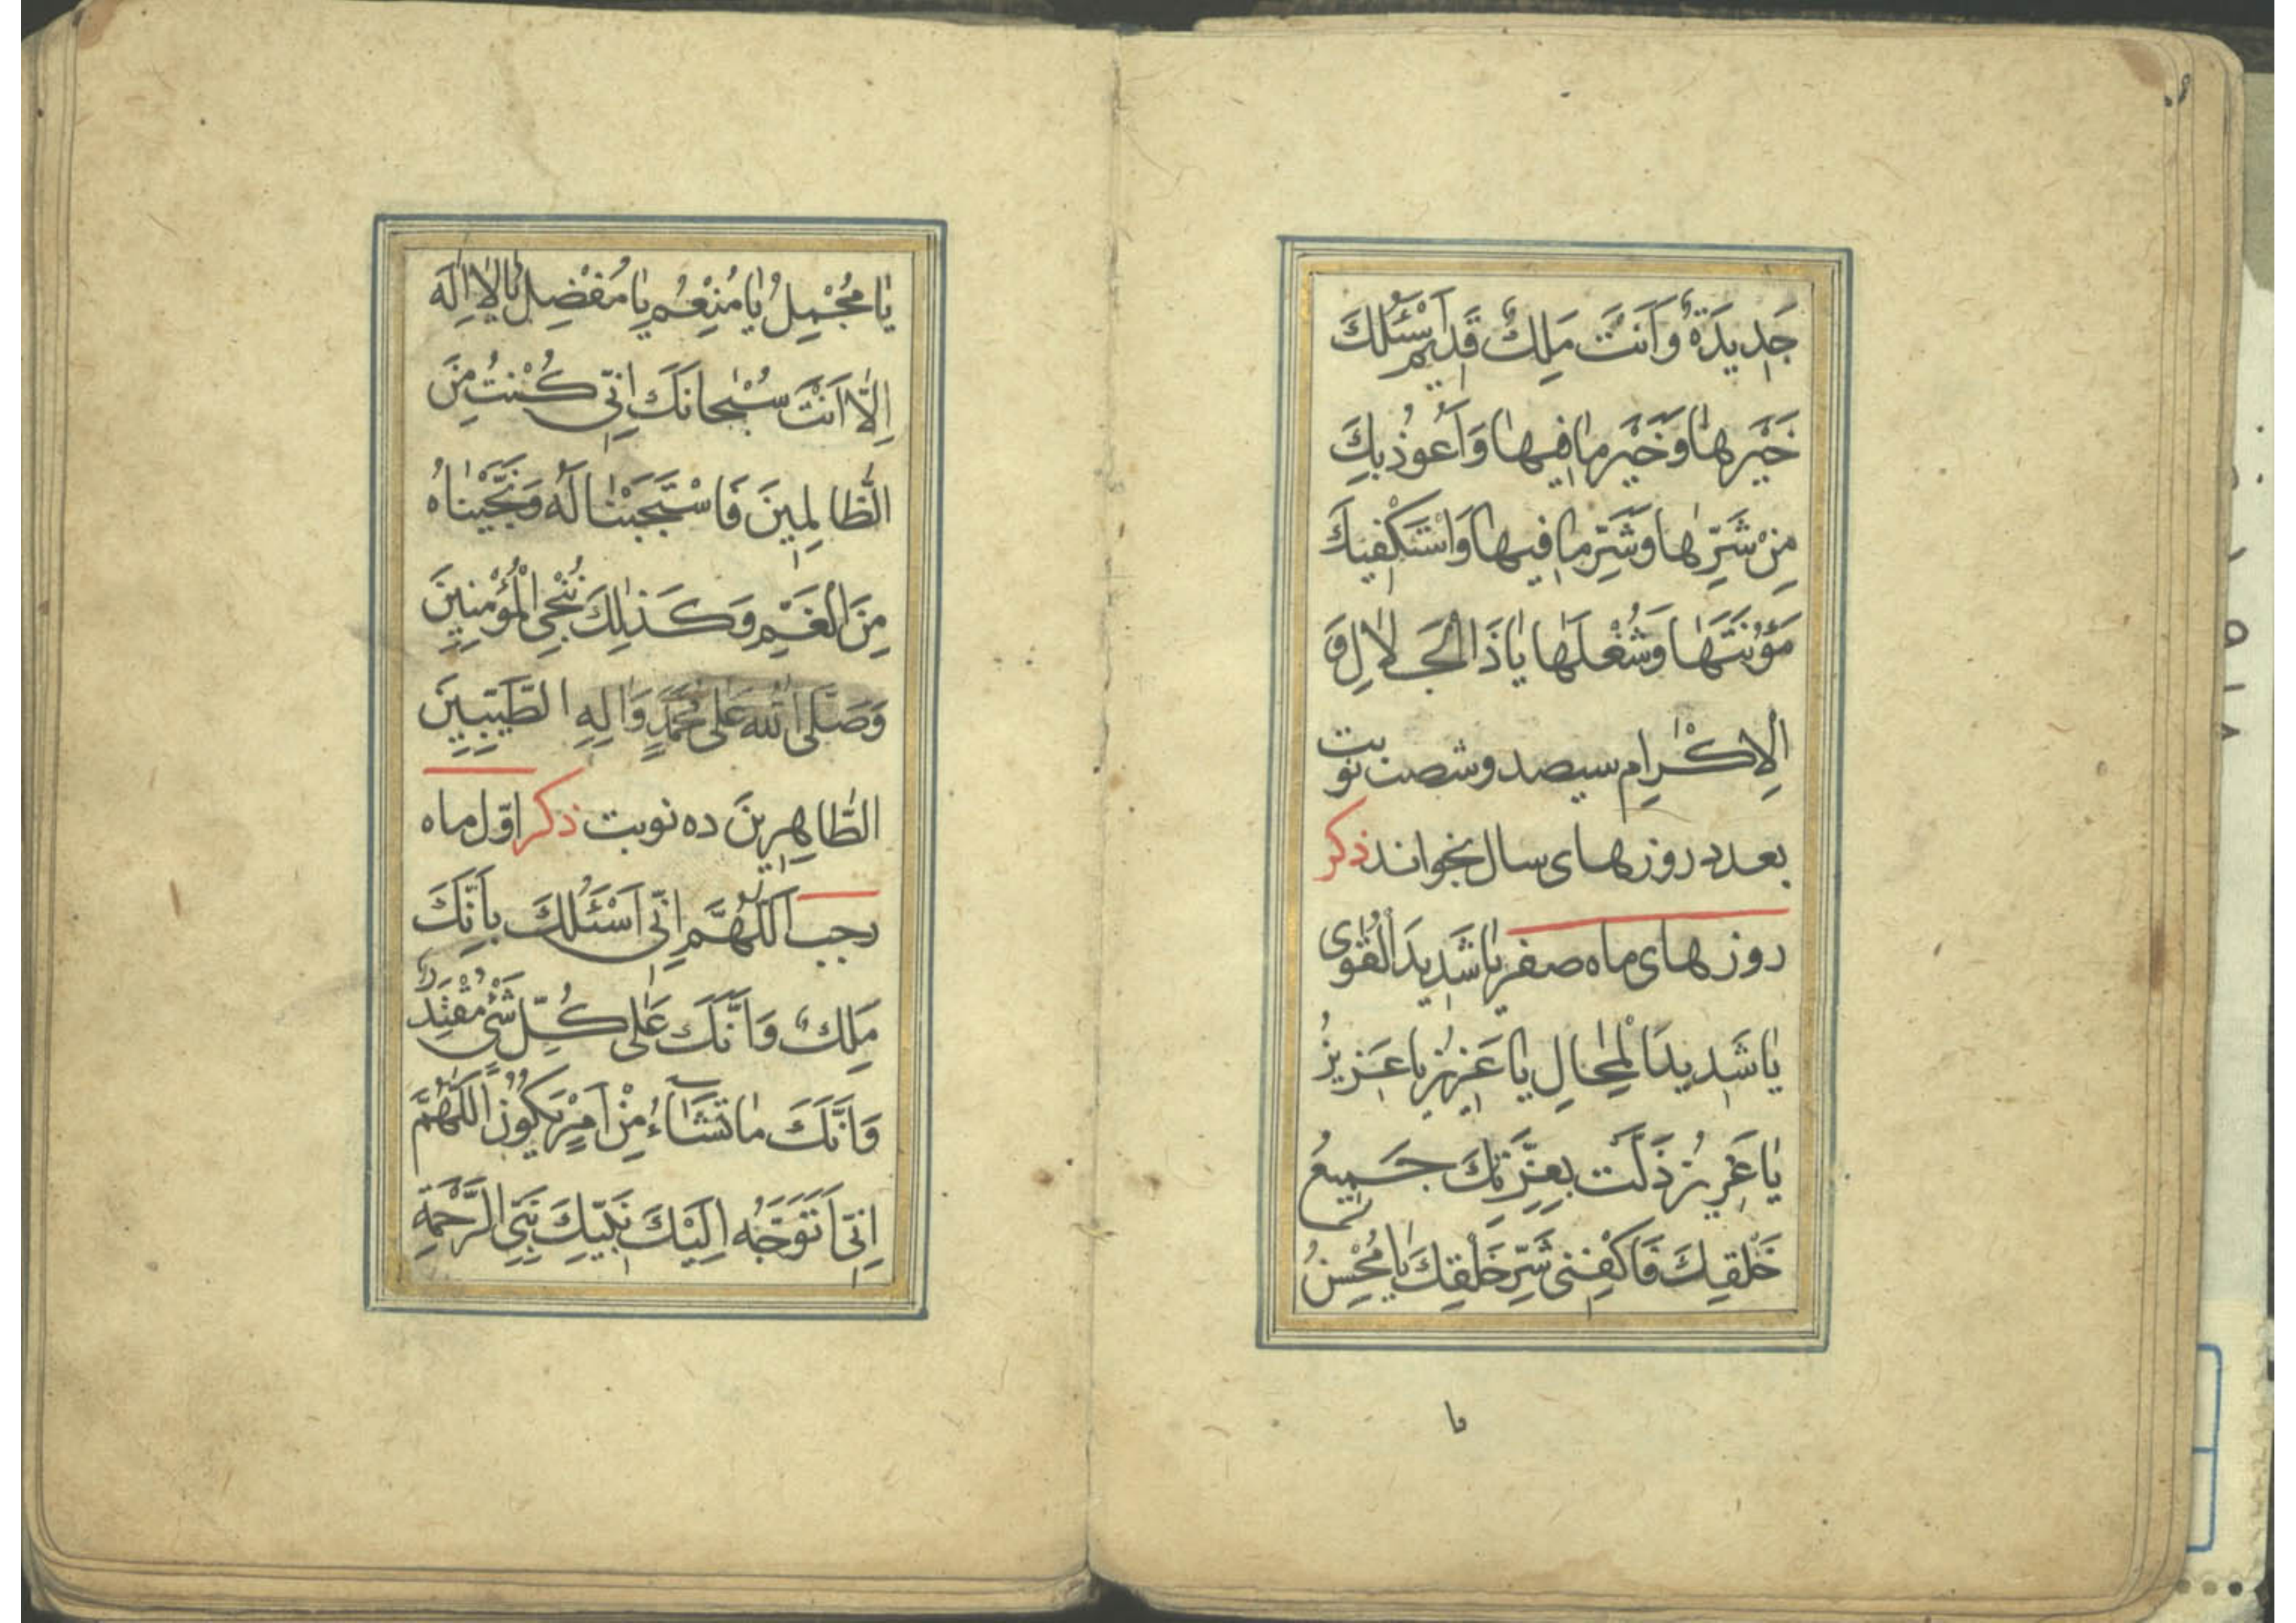 جَدِيدَةٌ وَاَنْتَ مَلِكٌ قَدِيمٌ اَسْئَلُكَ
خَيْرَهٰا وَخَيْرَ مٰا فِيهٰا وَاَعُوذُ بِكَ
مِنْ شَرِّهٰا وَشَرِّ مٰا فِيهٰا وَاَسْتَكْفِيكَ
مَؤُنَتَهٰا وَشُغْلَهٰا يٰا ذَا الْجَلٰالِ وَ
الْاِكْرٰامِ سیصد و شصت نوبت
بعدد روزهای سال بخواند ذکر
روزهای ماه صفر يٰا شَدِيدَ الْقُوٰى
يٰا شَدِيدَ الْمِحٰالِ يٰا عَزِيزُ يٰا عَزِيزُ
يٰا عَزِيزُ ذَلَّتْ بِعِزَّتِكَ جَمِيعُ
خَلْقِكَ فَاكْفِنِى شَرَّ خَلْقِكَ يٰا مُحْسِنُ
يا
يٰا مُجْمِلُ يٰا مُنْعِمُ يٰا مُفْضِلُ يٰا لٰا اِلٰهَ
اِلّٰا اَنْتَ سُبْحانَكَ اِنِّى كُنْتُ مِنَ
الظّٰالِمِينَ فَاسْتَجَبْنٰا لَهُ وَنَجَّيْنٰاهُ
مِنَ الْغَمِّ وَكَذٰلِكَ نُنْجِى الْمُؤْمِنِينَ
وَصَلَّى اللّٰهُ عَلٰى مُحَمَّدٍ وَاٰلِهِ الطَّيِّبِينَ
الطّٰاهِرِينَ ده نوبت ذکر اوّل ماه
رجب اَللّٰهُمَّ اِنِّى اَسْئَلُكَ بِاَنَّكَ
مَلِكٌ وَاَنَّكَ عَلٰى كُلِّ شَىْءٍ مُقْتَدِرٌ
وَاَنَّكَ مٰا تَشٰآءُ مِنْ اَمْرٍ يَكُونُ اَللّٰهُمَّ
اِنِّى اَتَوَجَّهُ اِلَيْكَ بِنَبِيِّكَ نَبِىِّ الرَّحْمَةِ